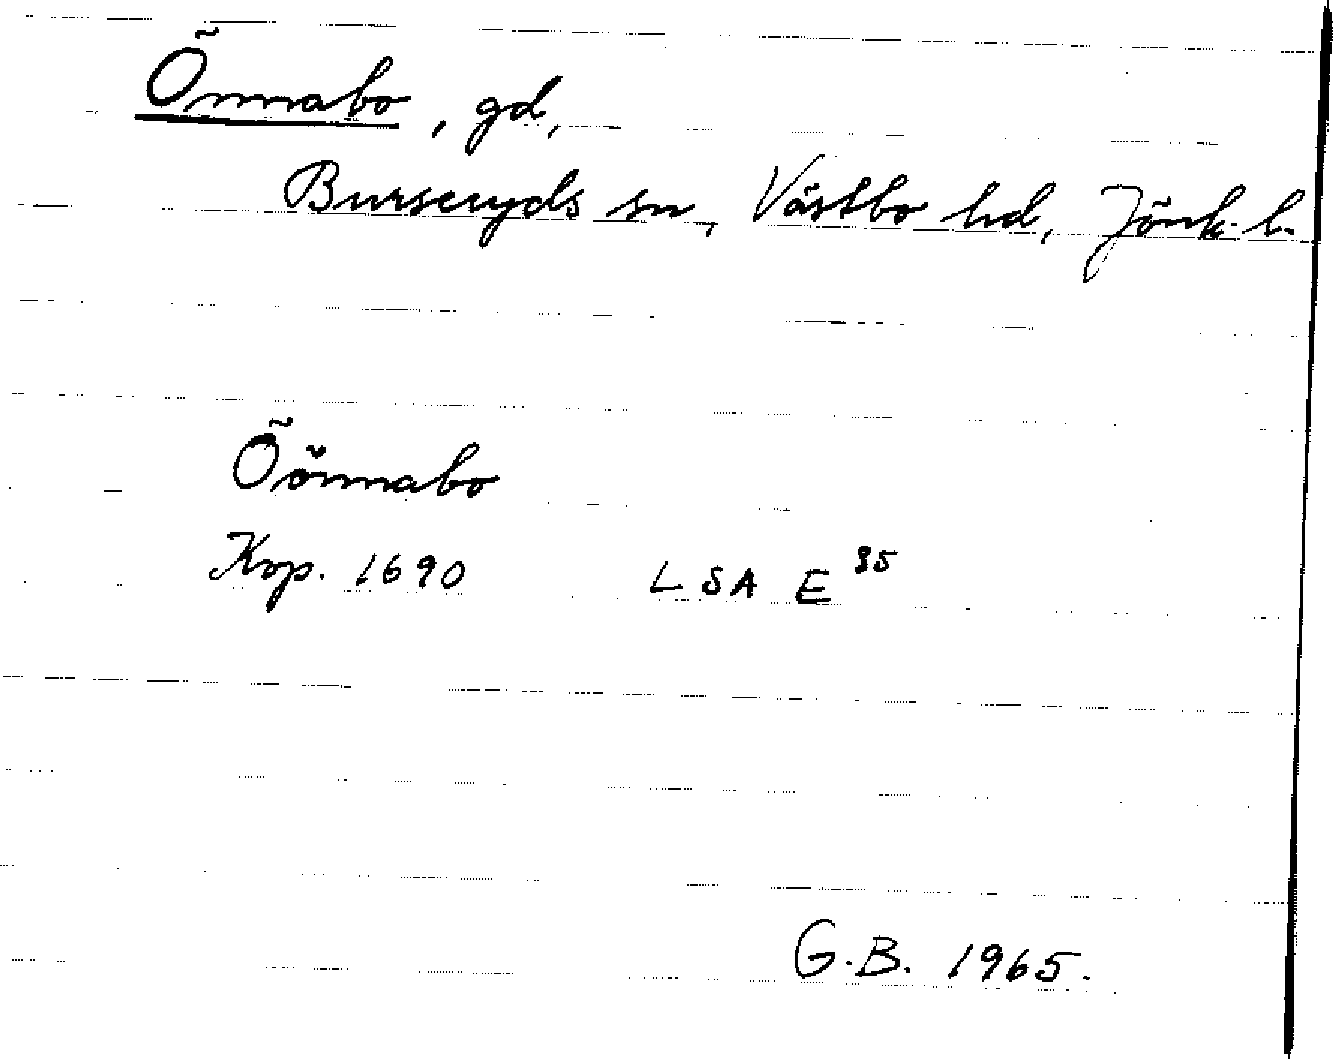 Önnabo, gd,
Burseryds sn, Västbo hd, Jönk. l.
Öönnabo
Kop. 1690 LSA E 35
G.B. 1965.